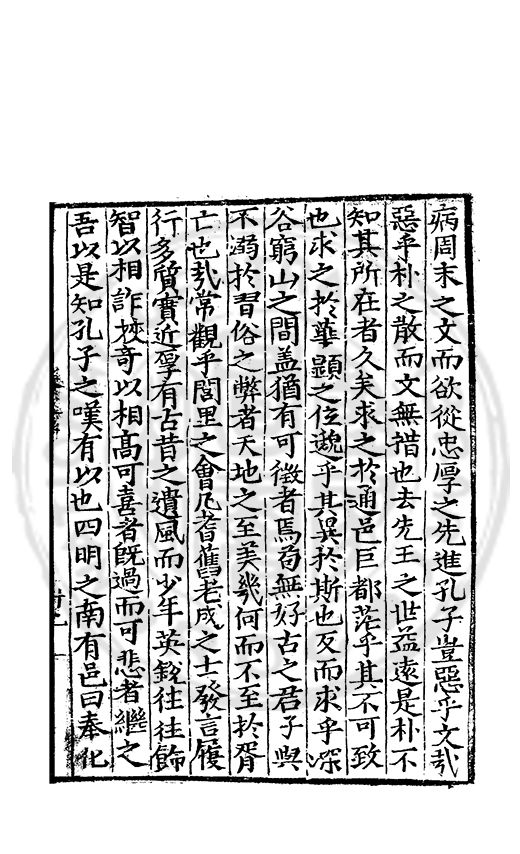 病周末之文而欲從忠厚之先進孔子豈惡乎文㢤
惡乎朴之散而文無措也去先王之世益遠是朴不
知其所在者久矣求之於通邑巨都茫乎其不可致
也求之於華顯之位邈乎其異於斯也反而求乎深
谷窮山之間盖猶有可徵者焉苟無好古之君子與
不溺於習俗之弊者天地之至美幾何而不至於胥
亡也㢤常觀乎閭里之會凡耆舊老成之士發言履
行多質實近厚有古昔之遺風而少年英銳往往飾
智以相詐挾奇以相高可喜者旣過而可悲者繼之
吾以是知孔子之嘆有以也四明之南有邑曰奉化